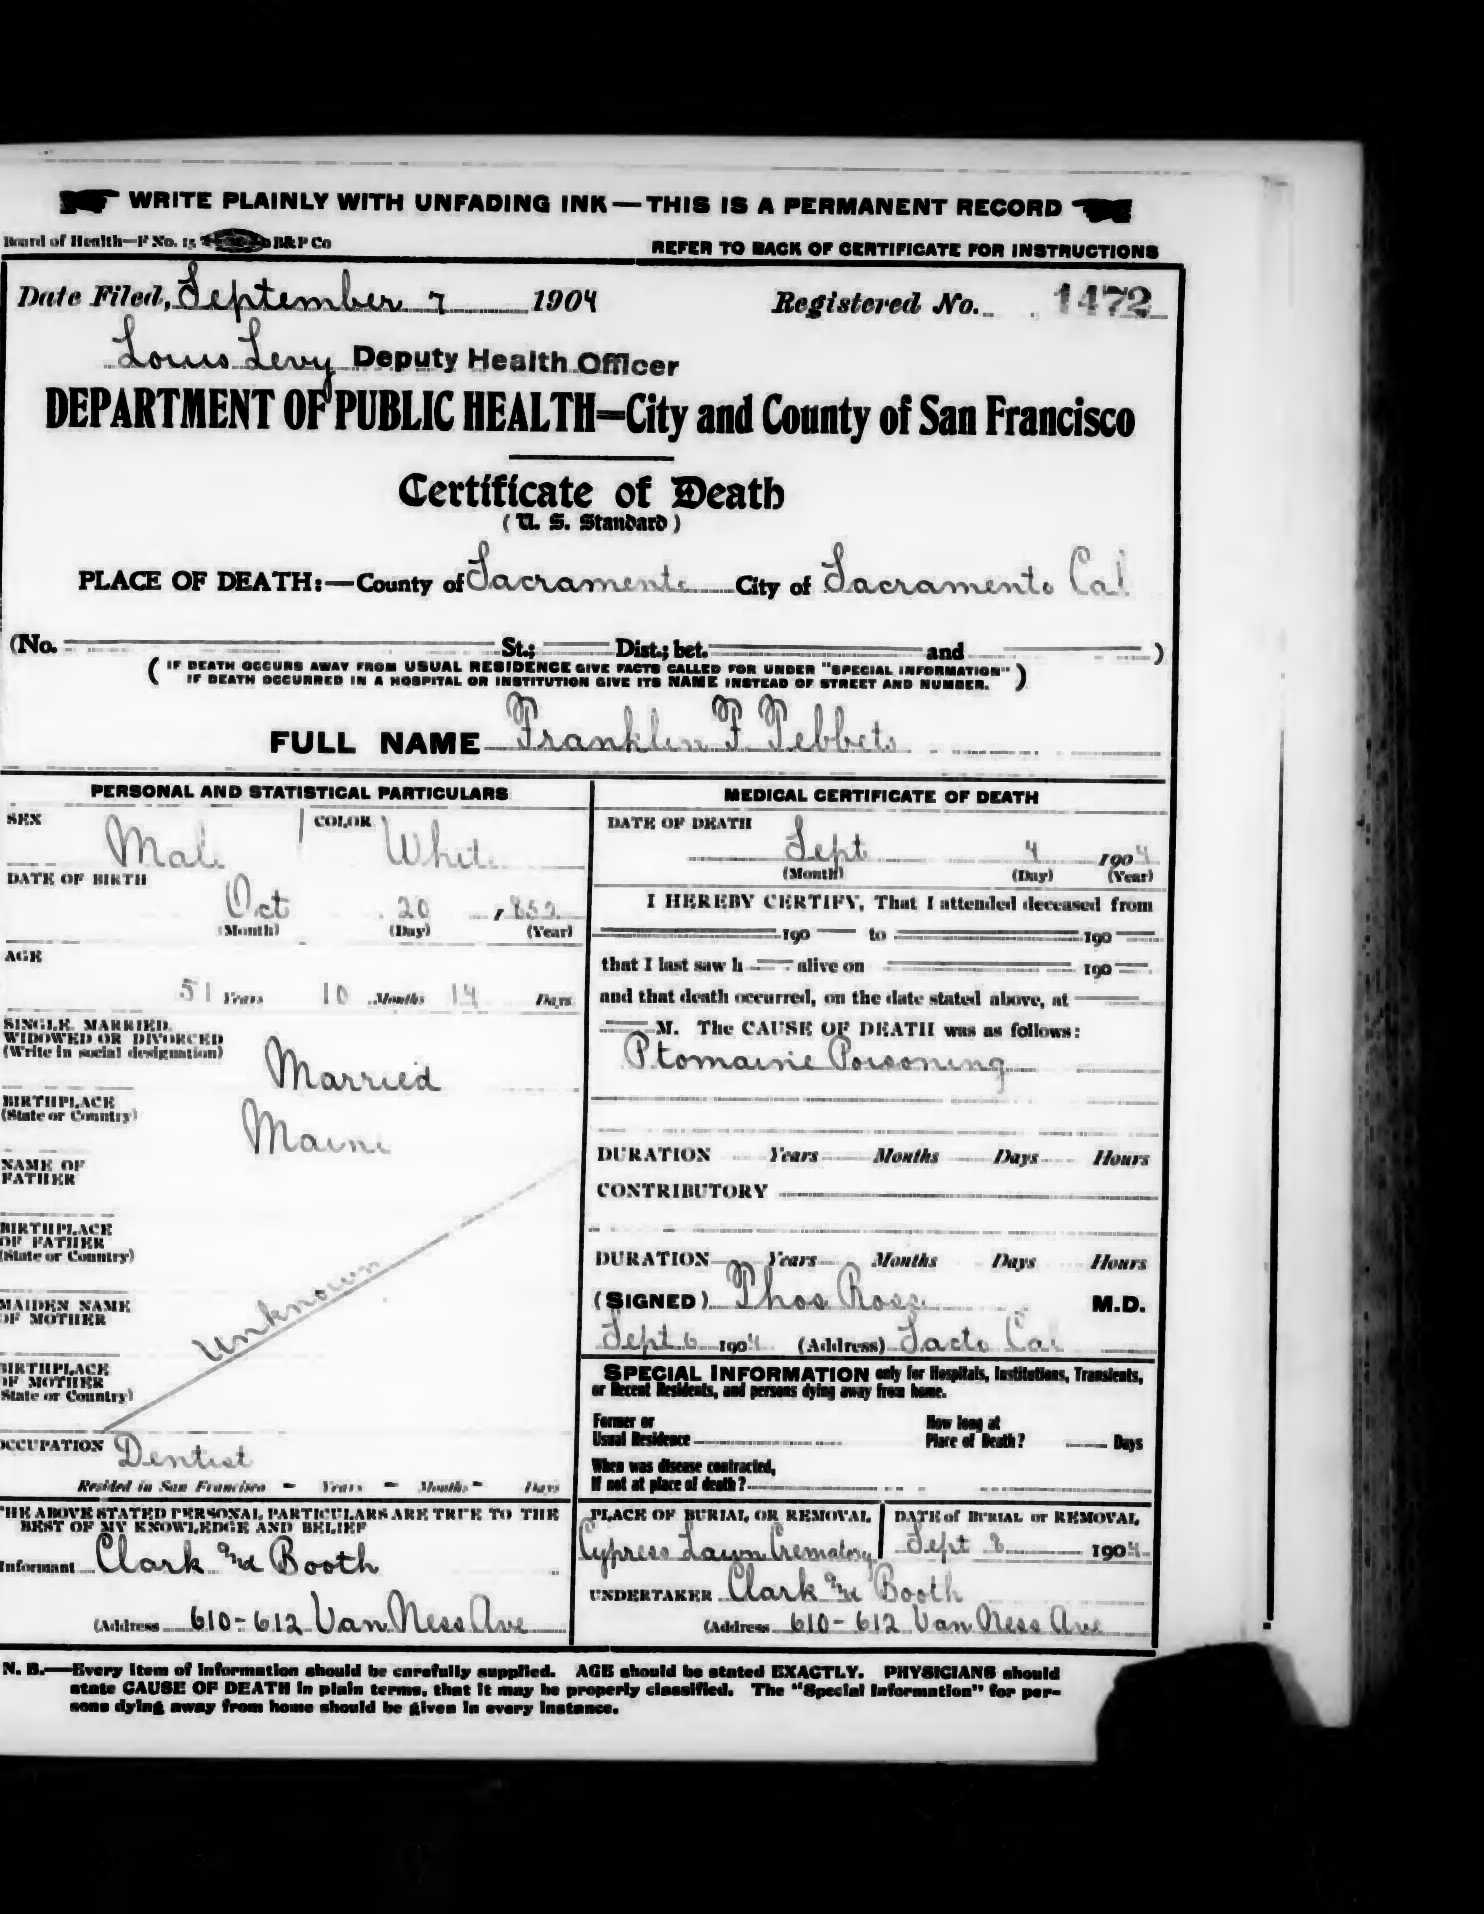 WRITE PLAINLY WITH UNFADING INK—THIS IS A PERMANENT RECORD
Board of Health—F No. 15 B&P Co
REFER TO BACK OF CERTIFICATE FOR INSTRUCTIONS
Date Filed, September 7 1904 Registered No. 1472
Louis Levy Deputy Health Officer
DEPARTMENT OF PUBLIC HEALTH=City and County of San Francisco
Certificate of Death
( U. S. Standard )
PLACE OF DEATH:—County of Sacramento City of Sacramento Cal
(No. St.; Dist.; bet. and )
( IF DEATH OCCURS AWAY FROM USUAL RESIDENCE GIVE FACTS CALLED FOR UNDER "SPECIAL INFORMATION"
IF DEATH OCCURRED IN A HOSPITAL OR INSTITUTION GIVE ITS NAME INSTEAD OF STREET AND NUMBER. )
FULL NAME Franklin F. Tebbets
PERSONAL AND STATISTICAL PARTICULARS
SEX Male COLOR White
DATE OF BIRTH
Oct 20 , 852
(Month) (Day) (Year)
AGE
51 Years 10 Months 14 Days
SINGLE, MARRIED,
WIDOWED OR DIVORCED
(Write in social designation)
Married
BIRTHPLACE
(State or Country)
Maine
NAME OF
FATHER
BIRTHPLACE
OF FATHER
(State or Country)
Unknown
MAIDEN NAME
OF MOTHER
BIRTHPLACE
OF MOTHER
State or Country)
OCCUPATION Dentist
Resided in San Francisco - Years - Months - Days
THE ABOVE STATED PERSONAL PARTICULARS ARE TRUE TO THE
BEST OF MY KNOWLEDGE AND BELIEF
Informant Clark and Booth
(Address 610-612 Van Ness Ave
MEDICAL CERTIFICATE OF DEATH
DATE OF DEATH
Sept 4 1904
(Month) (Day) (Year)
I HEREBY CERTIFY, That I attended deceased from
190 to 190
that I last saw h alive on 190
and that death occurred, on the date stated above, at
M. The CAUSE OF DEATH was as follows:
Ptomaine Poisoning
DURATION Years Months Days Hours
CONTRIBUTORY
DURATION Years Months Days Hours
(SIGNED) Thos Ross M.D.
Sept 6 1904 (Address) Sacto Cal
SPECIAL INFORMATION only for Hospitals, Institutions, Transients,
or Recent Residents, and persons dying away from home.
Former or
Usual Residence
How long at
Place of Death? Days
When was disease contracted,
If not at place of death?
PLACE OF BURIAL OR REMOVAL
Cypress Lawn Crematory
DATE of BURIAL or REMOVAL
Sept 8 1904
UNDERTAKER Clark and Booth
(Address 610-612 Van Ness Ave
N. B.—Every item of information should be carefully supplied. AGE should be stated EXACTLY. PHYSICIANS should
state CAUSE OF DEATH in plain terms, that it may be properly classified. The "Special Information" for per-
sons dying away from home should be given in every instance.